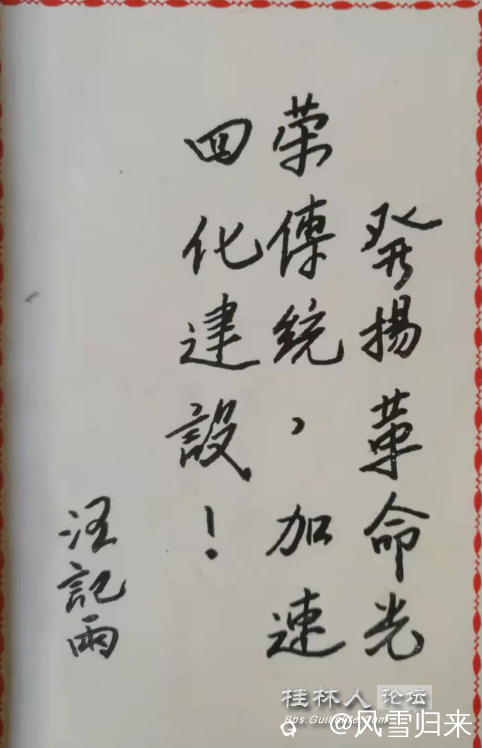 發揚革命光
荣傳統，加速
四化建設！
汪記雨
桂林人论坛
Bbs.Guilinlife.Com
@风雪归来